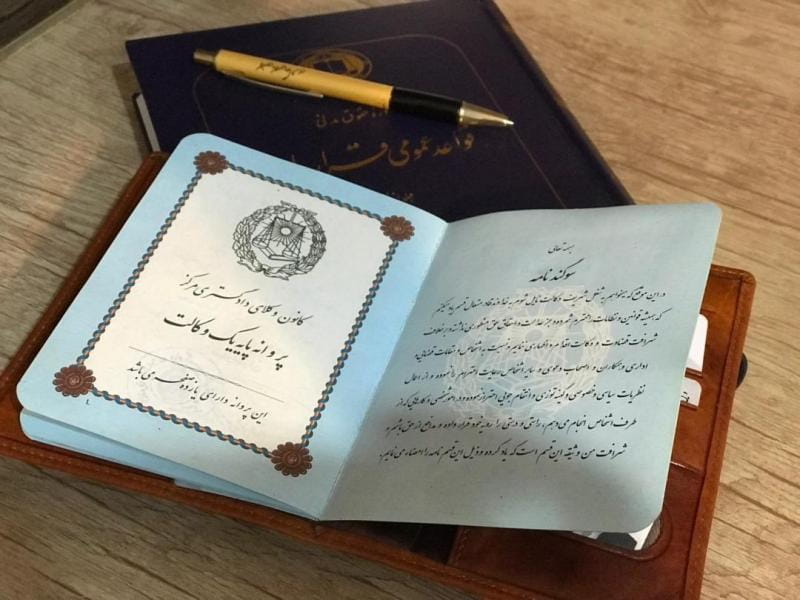 حقوق مدنی
قواعد عمومی قرار
کانون وکلای دادگستری مرکز
پروانه پایه یک وکالت
این پروانه دارای یازده صفحه می باشد
بسمه تعالی
سوگند نامه
در این موقع که میخواهم به شغل شریف وکالت نایل شوم به خداوند قادر متعال قسم یاد میکنم
که همیشه قوانین و نظامات را محترم شمرده و جز عدالت و احقاق حق منظوری نداشته و برخلاف
شرافت قضاوت و وکالت اقدام و اظهاری ننمایم و نسبت به اشخاص و مقامات قضایی و
اداری و همکاران و اصحاب دعوی و سایر اشخاص رعایت احترام را نموده و از اعمال
نظریات سیاسی و خصوصی و کینه توزی و انتقام جویی احتراز نموده و در امور شخصی و کارهایی که از
طرف اشخاص انجام می دهم، راستی و درستی را رویه خود قرار داده و مدافع از حق باشم و
شرافت من وثیقه این قسم است که یاد کرده و ذیل این قسم نامه را امضاء می نمایم.